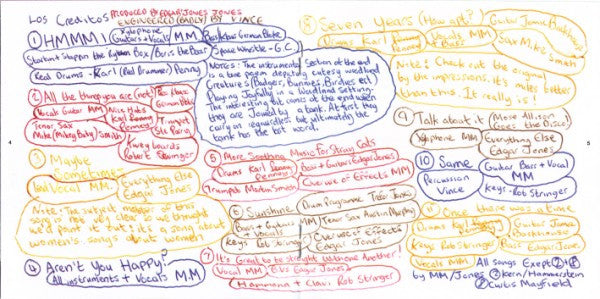 Los Creditos PRODUCED BY EDGAR JONES JONES
ENGINEERED (BADLY) BY VINCE
① HMMM! Xylophone Guitars + Vocals MM
Space Whistle - G.C.
Real Drums - Karl (Real Drummer) Penny
NOTES: The instrumental section at the end
is a tone poem depicting cutesy woodland
Creatures (Badgers, Bunnies, Birdies etc)
Playing Joyfully in a Woodland Setting.
The interesting bit comes at the end when
they are joined by a tank. At first they
carry on regardless but ultimately the
tank has the last word.
② All the things you are (not)
Vocals Guitar MM
Tenor Sax
Trumpet
③ Maybe
Sometimes
Lead Vocal MM
Everything Else
Edgar Jones
Note: The subject matter of this
song is not very clear so we thought
we'd point it out: its a song about
women's songs about women
④ Aren't You Happy?
All instruments + Vocals MM
4
⑤ More Soothing Music for Stray Cats
Drums Karl Penny
Bass + Guitars Edgar Jones
Trumpets Martin Smith
Overuse of Effects MM
⑥ Sunshine
Drum Programme
Bass + Guitars + Vocals MM
Tenor Sax Austin Murphy
Keys Rob Stringer
Overuse of Effects
Edgar Jones
⑦ It's Great to be Straight With One Another!
Vocal MM
BVs Edgar Jones
Hammond + Clavi Rob Stringer
⑧ Seven Years (How apt!)
Drums Karl Penny
Vocals MM
+ Bass
Sax Mike Smith
Note! Check out the original
by the impressions. It's miles better
than this. It really is!
⑨ Talk about it (Mose Allison Goes the Disco)
Xylophone MM
Everything Else
Edgar Jones
⑩ Same
Percussion
Vince
Guitar Bass + Vocal
MM
Keys - Rob Stringer
⑪ Once there was a time
Drums Karl
Keys Rob Stringer
Bass Edgar Jones
Vocals MM
All songs Exept ② + ⑧
by MM/Jones
② Kern/Hammerstein
⑧ Curtis Mayfield
5